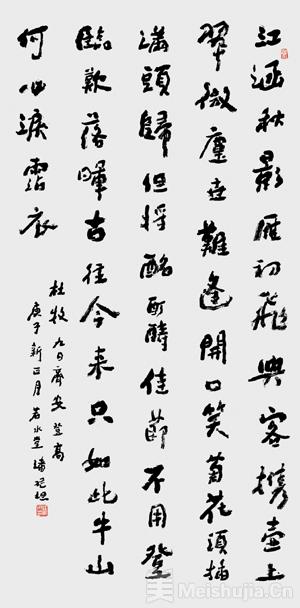 江涵秋影雁初飛與客携壺上
翠微塵世難逢開口笑菊花須插
滿頭歸但将酩酊醻佳節不用登
臨歎落暉古往今来只如此牛山
何必淚霑衣
杜牧九日齊安登高
庚子新正月若水堂
Meishujia.Cn